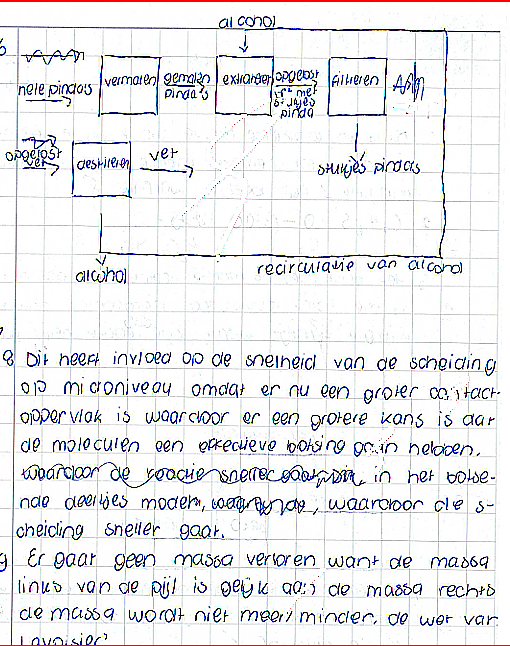 alcohol
hele pindas
vermalen
gemalen
pinda's
extraheren
opgelost
vet met
stukjes
pinda
filtreren
opgelost
vet
destilleren
vet
stukjes pindas
recirculatie van alcohol
alcohol
8 Dit heeft invloed op de snelheid van de scheiding
op microniveau omdat er nu een groter contact-
oppervlak is waardoor er een grotere kans is dat
de moleculen een effectieve botsing gaan hebben.
in het botse-
nde deeltjes model, waardoor de s-
cheiding sneller gaat.
9 Er gaat geen massa verloren want de massa
links van de pijl is gelijk aan de massa rechts
de massa wordt niet meer/minder. de wet van
Lavoisier